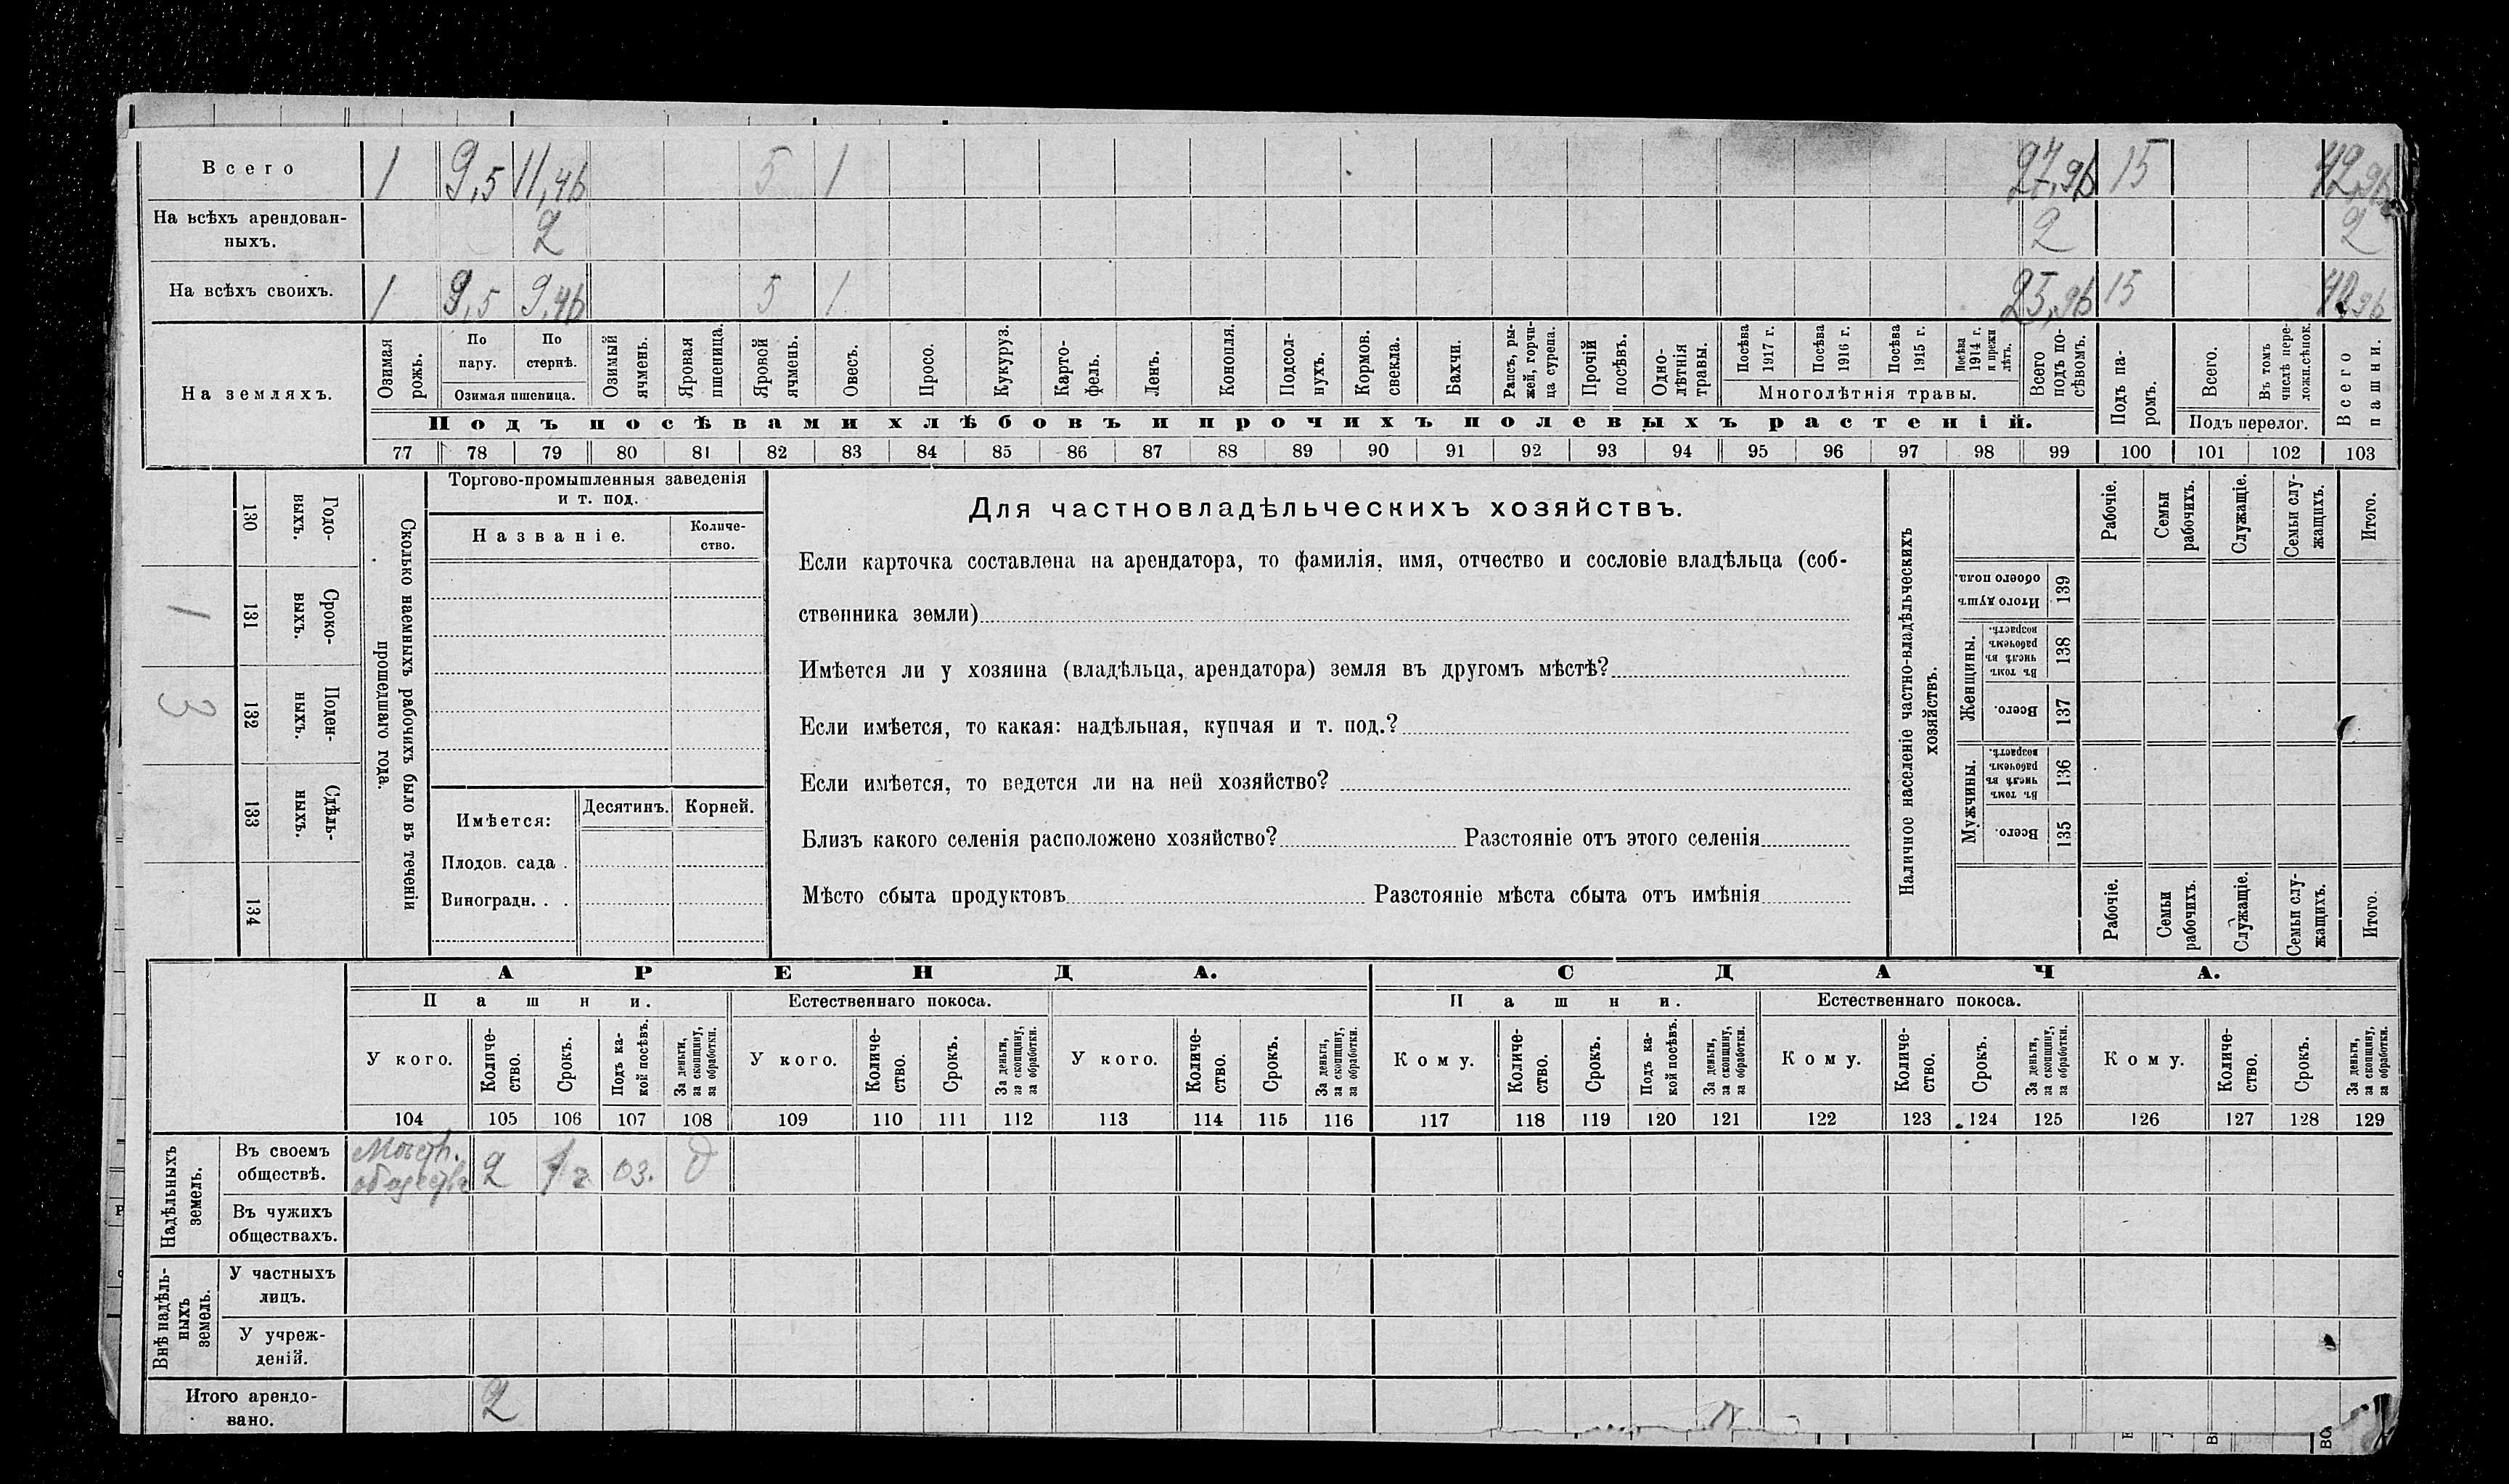 Всего 1 9,5 11,46 5 1 27,96 15 42,96
На всѣхъ арендован-
ныхъ. 2 2 2
На всѣхъ своихъ. 1 9,5 9,46 5 1 25,96 15
На земляхъ.
Озимая рожь.
По пару.
По стернѣ.
Озимая пшеница.
Озимый ячмень.
Яровая пшеница.
Яровой ячмень.
Овесъ.
Просо.
Кукуруз.
Карто-
фель.
Ленъ.
Конопля.
Подсол-
нухъ.
Кормов. свекла.
Бахчи.
Рапсъ, ры-
жей, горчи-
ца сурепа.
Прочій посѣвъ.
Одно-
лѣтнія травы.
Посѣва 1917 г.
Посѣва 1916 г.
Посѣва 1915 г.
Посѣва 1914 г. и прежн лѣтъ.
Многолѣтнія травы.
Всего подъ по-
сѣвомъ.
Подъ посѣвами хлѣбовъ и прочихъ полевыхъ растеній.
Подъ па-
ромъ.
Всего.
Въ томъ числѣ пере-
ложн.сѣнок.
Подъ перелог.
Всего пашни.
77 78 79 80 81 82 83 84 85 86 87 88 89 90 91 92 93 94 95 96 97 98 99 100 101 102 103
Сколько наемныхъ рабочихъ было въ теченіи
прошедшаго года.
Годо-
выхъ.
130
Сроко-
выхъ.
131
1
Поден-
ныхъ.
132
3
Сдѣль-
ныхъ.
133
134
Торгово-промышленныя заведенія
и т. под.
Названіе.
Количе-
ство.
Имѣется:
Десятинъ.
Корней.
Плодов. сада .
Виноградн. . .
Для частновладѣльческихъ хозяйствъ.
Если карточка составлена на арендатора, то фамилія, имя, отчество и сословіе владѣльца (соб-
ственника земли)
Имѣется ли у хозяина (владѣльца, арендатора) земля въ другомъ мѣстѣ?
Если имѣется, то какая: надѣльная, купчая и т. под.?
Если имѣется, то ведется ли на ней хозяйство?
Близъ какого селенія расположено хозяйство? Разстояніе отъ этого селенія
Мѣсто сбыта продуктовъ Разстояніе мѣста сбыта отъ имѣнія
Наличное населеніе частно-владѣльческихъ
хозяйствъ.
Рабочіе.
Семьи рабочихъ.
Служащіе.
Семьи слу-
жащихъ.
Итого.
Итого душъ обоего пола.
139
Женщины.
Въ томъ числѣ въ рабочемъ возрастѣ.
138
Всего.
137
Мужчины.
Въ томъ числѣ въ рабочемъ возрастѣ.
136
Всего.
135
Рабочіе.
Семьи рабочихъ.
Служащіе.
Семьи слу-
жащихъ.
Итого.
АРЕНДА. СДАЧА.
Пашни. Естественнаго покоса. Пашни. Естественнаго покоса.
У кого.
Количе-
ство.
Срокъ.
Подъ ка-
кой посѣвъ.
За деньги, за скопщину, за обработки.
У кого.
Количе-
ство.
Срокъ.
За деньги, за скопщину, за обработки.
У кого.
Количе-
ство.
Срокъ.
За деньги, за скопщину, за обработки.
Кому.
Количе-
ство.
Срокъ.
Подъ ка-
кой посѣвъ.
За деньги, за скопщину, за обработки.
Кому.
Количе-
ство.
Срокъ.
За деньги, за скопщину, за обработки.
Кому.
Количе-
ство.
Срокъ.
За деньги, за скопщину, за обработки.
104 105 106 107 108 109 110 111 112 113 114 115 116 117 118 119 120 121 122 123 124 125 126 127 128 129
Надѣльныхъ
земель.
Въ своемъ
обществѣ.
общества 2 1 г. оз. д
Въ чужихъ
обществахъ.
Внѣ надѣль-
ныхъ
земель.
У частныхъ
лицъ.
У учреж-
деній.
Итого арендо-
вано. 2